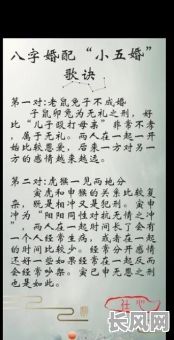 八字婚配“小五婚”
歌诀
第一对:老鼠兔子不成婚
子鼠卯兔为无礼之刑，好
比“儿子殴打母亲”非常不孝
，属于无礼。两人在一起一开
始比较恩爱，后来一方对另一
方的感情越来越远。
第二对:虎猴一见两地分
寅虎和申猴的关系比较复
杂，既是相冲又是犯刑。寅申
冲为“阳阳同性对抗无情之冲
”，两人在一起时间长了会有
一个人经常生病，或者在一起
的时间比较少。经常分开感情
还好一些如果经常在一起反而
会经常吵架。寅巳申无恩之刑
也是如此。
长风网